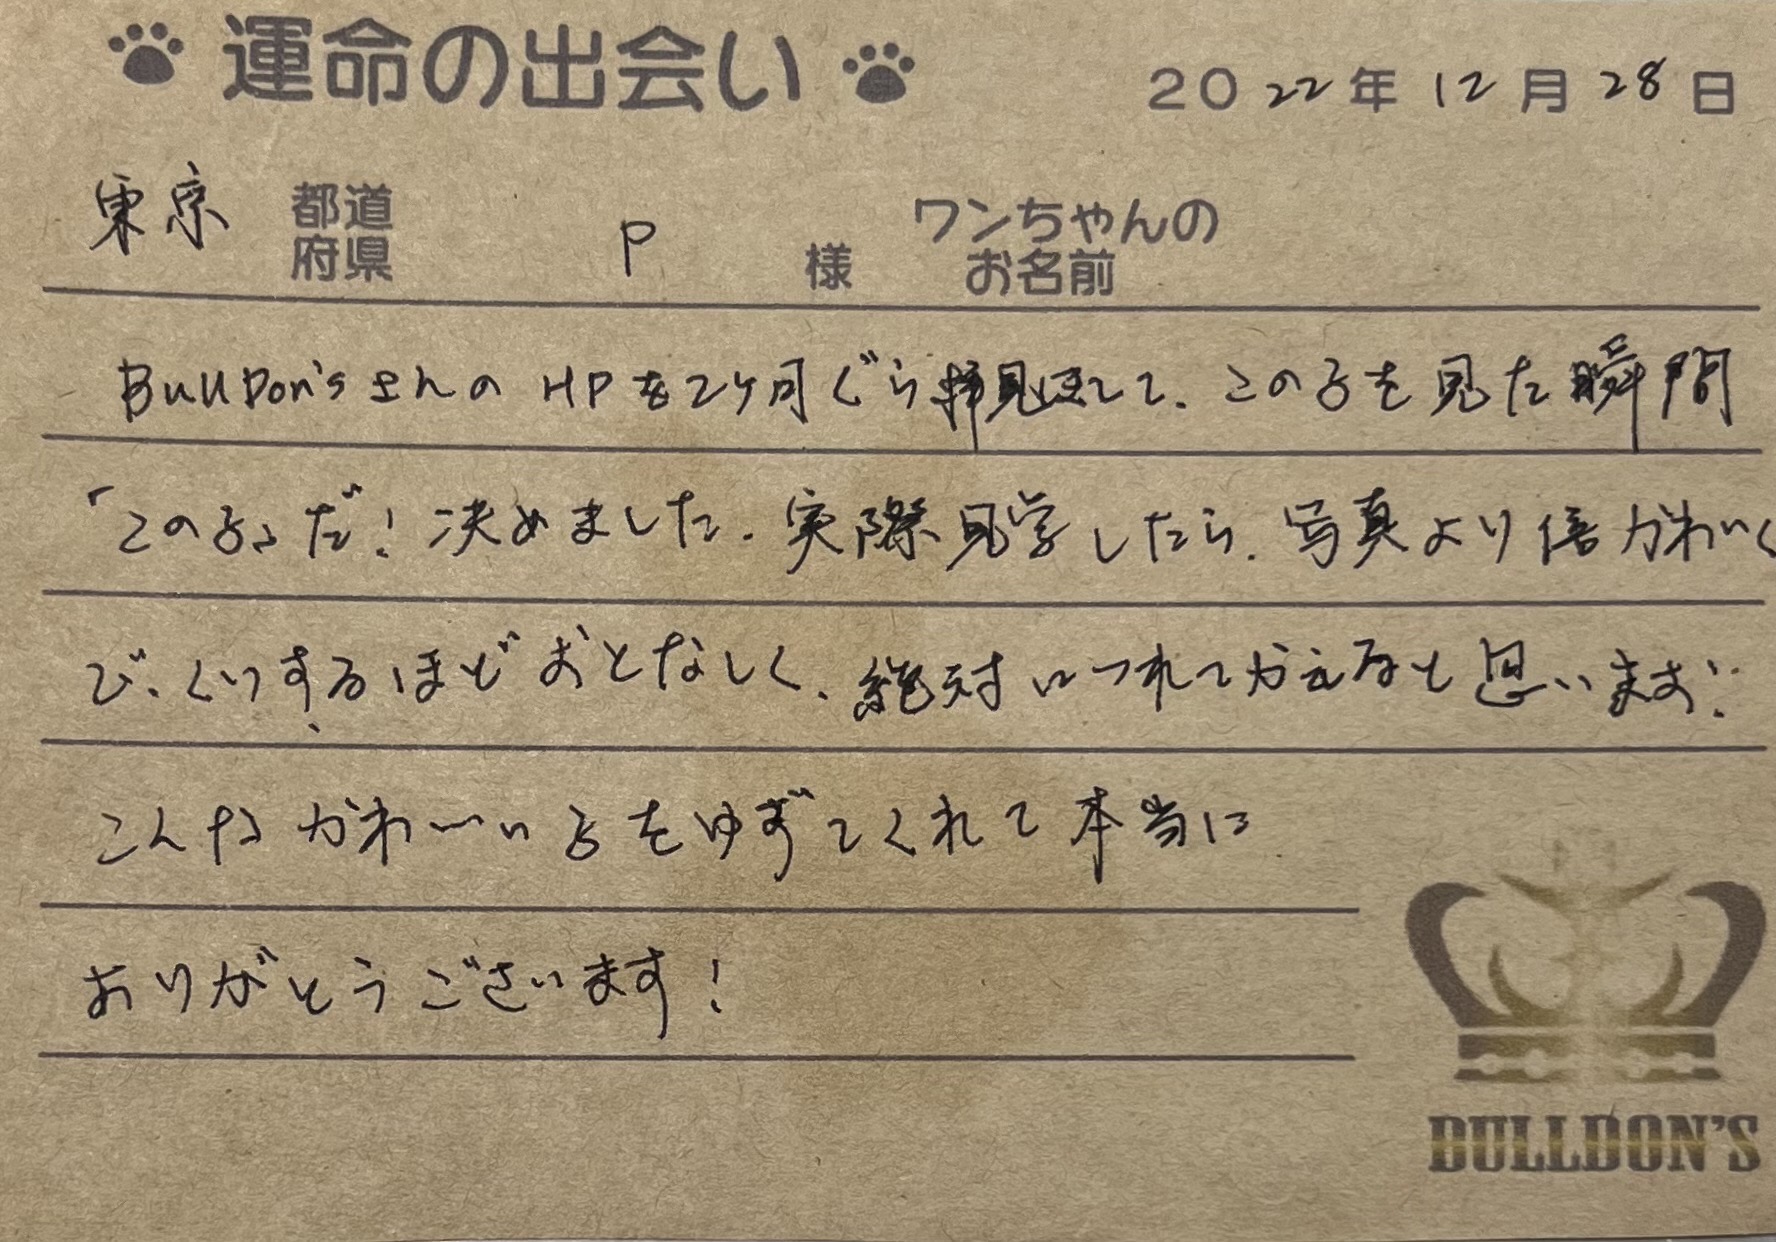 運命の出会い 2022年12月28日
東京 都道府県 P 様 ワンちゃんのお名前
BullDon's さんの HPを2ヶ月ぐら拝見まして、この子を見た瞬間
「この子」だ!決めました。実際見学したら、写真より倍かわいく
びっくりするほどおとなしく、絶対につれてかえるなと思います!
こんなかわいい子をゆずてくれて本当に
ありがとうございます!
BULLDON'S